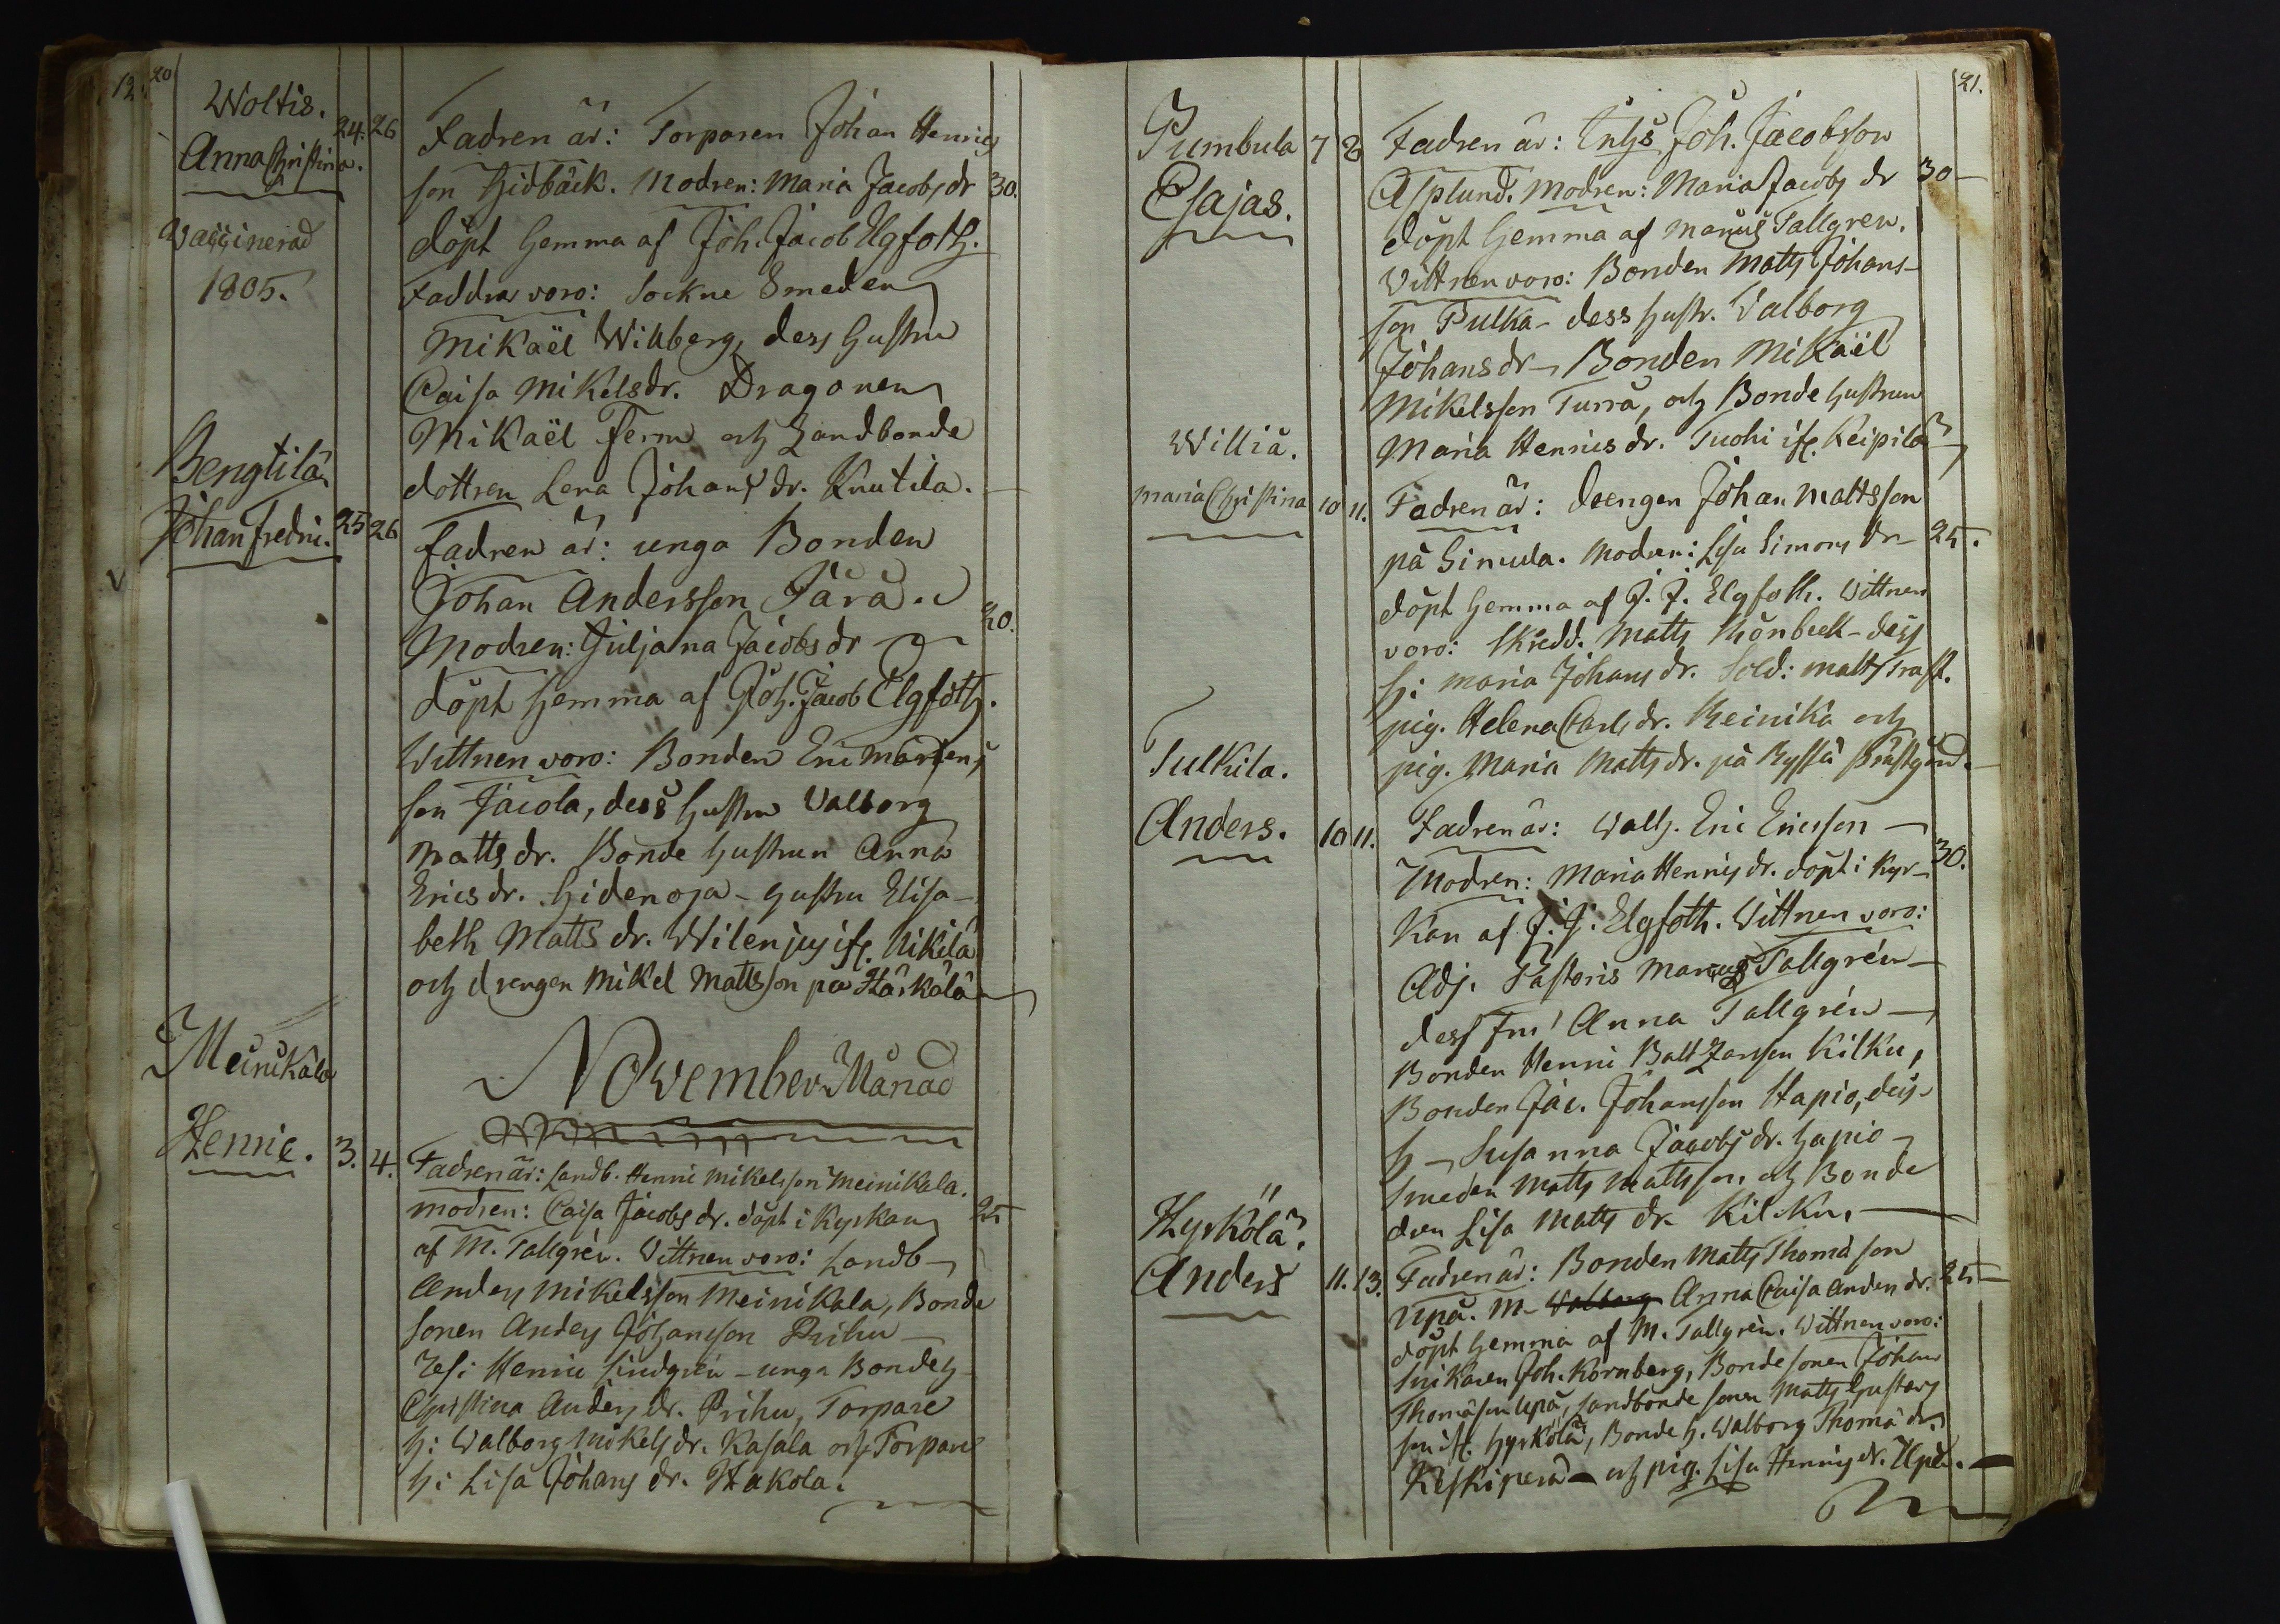 12. 20
Woltis.
Anna Christina. 24. 26
Waccinerad
1805.
Fadren är: Torparen Johan Henrics
son Hidbäck. Modren: Maria Jacobs dr 30.
döpt hemma af Joh. Jacob Elgfoth.
Faddrar voro: Sockne Smeden
Mikaël Willberg, dess hustru
Caisa Mikelsdr. Dragonen
Mikaël Ferm och Landbonde
dottren Lena Johans dr. Knutila.
Bengtilä
Johan Fredric. 25 26
Fadren är: unga Bonden
Johan Andersson Pärä.
Modren: Juljana Jacobs dr 20.
döpt hemma af Joh. Jacob Elgfoth.
Wittnen voro: Bonden Eric Mårtens
son Jacola, dess hustru Valborg
Matts dr. Bonde hustrun Anna
Erics dr. Hidenoja - hustru Elisa-
beth Matts dr. Wilenius ifr. Nikilä
och drengen Mikel Mattsson på Härkälä
November Månad
Meinikala
Henric. 3. 4.
Fadren är: Landb. Henric Mikelsson Meinikala.
modren: Caisa Jacobs dr. döpt i Kyrkan 25
af M. Tallgrén. Wittnen voro: Landb-
Anders Mikelsson Meinikala, Bonde
sonen Anders Johansson Prihu -
Res: Henric Lindgrén - unga Bonde h
Christina Anders dr. Prihu, Torpare
h: Walborg Mikels dr. Kasala och Torpare
h: Lisa Johans dr. Hakola.
21.
Pumbula 7 8
Esajas.
Fadren är: Inhys Joh. Jacobsson
Asplund. Modren: Maria Jacobs dr 30
döpt hemma af Marcus Tallgren.
Vittnen voro: Bonden Matts Johans-
son Pulka - dess hustr. Valborg
Johansdr - Bonden Mikaël
Mikelsson Turra, och Bonde hustrun
Maria Henrics dr. Tuohi ifr. Keipilä
Williä.
Maria Christina 10 11.
Fadren är: drengen Johan Mattsson
på Simula. Modren: Lisa Simons dr 25.
döpt hemma af J. J. Elgfoth. Wittnen
voro: Skredd. Matts Rönbeck - dess
h: Maria Johans dr. Sold: Matts Trast.
pig. Helena Carls dr. Reinikä och
pig. Maria Matts dr. på Ryssä Prästgård.
Tulkila.
Anders. 10 11.
Fadren är: Walb. Eric Ericsson
Modren: Maria Henrics dr. döpt i Kyr- 30.
kan af J. J. Elgfoth. Wittnen voro:
Adj. Pastoris Marcus Tallgrén
dess Fru Anna Tallgrén
Bonden Henric Baltzarsson Kilku,
Bonden Jac. Johansson Hapio, dess
h - Susanna Jacobs dr. Hapio
Smeden Matts Mattsson och Bonde
dren Lisa Matts dr. Kilku.
Hyrkölä.
Anders 11. 13.
Fadren är: Bonden Matts Thomasson
Upa. M - Walborg Anna Caisa Anders dr. 25
döpt hemma af M. Tallgrén. Wittnen voro:
Snikaren Joh. Kornberg, Bonde sonen Johan
Thomasson Upa, Landbonde sonen Matts Gustavs
son ifr. Hyrkölä, Bonde h. Walborg Thoma dr.
Keskiperä - och pig. Lisa Henrics dr. Upa.